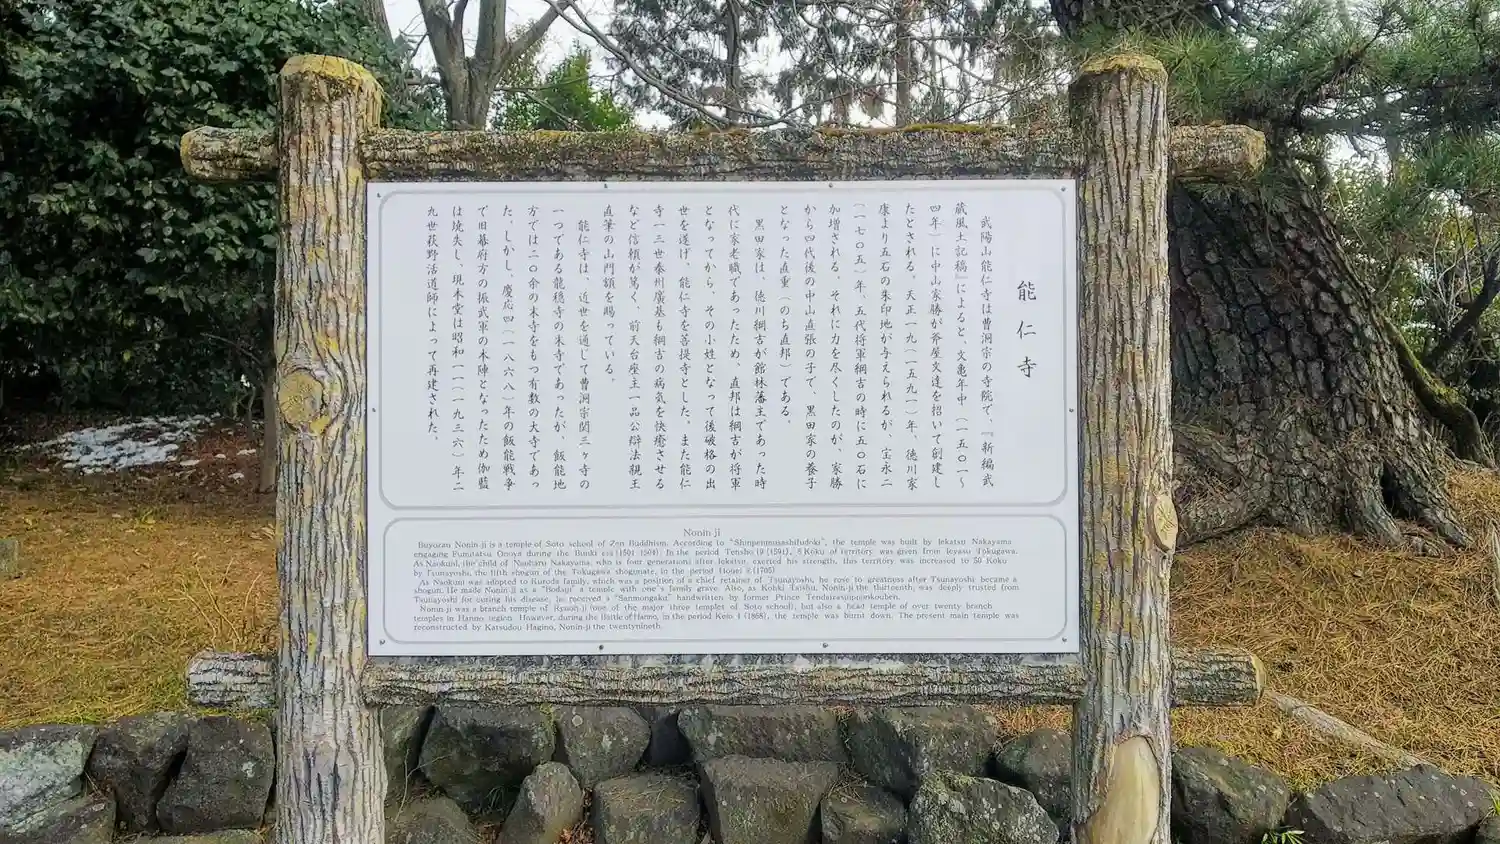 能仁寺
武陽山能仁寺は曹洞宗の寺院で、『新編武
蔵風土記稿』によると、文亀年中(一五〇一〜
四年)に中山家勝が斧屋文達を招いて創建し
たとされる。天正一九(一五九一)年、徳川家
康より五石の朱印地が与えられるが、宝永二
(一七〇五)年、五代将軍綱吉の時に五〇石に
加増される。それに力を尽くしたのが、家勝
から四代後の中山直張の子で、黒田家の養子
となった直重(のち直邦)である。
黒田家は、徳川綱吉が館林藩主であった時
代に家老職であったため、直邦は綱吉が将軍
となってから、その小姓となって後破格の出
世を遂げ、能仁寺を菩提寺とした。また能仁
寺一三世泰州廣基も綱吉の病気を快癒させる
など信頼が篤く、前天台座主一品公辯法親王
直筆の山門額を賜っている。
能仁寺は、近世を通して曹洞宗関三ヶ寺の
一つである龍穏寺の末寺であったが、飯能地
方では二〇余の末寺をもつ有数の大寺であっ
た。しかし、慶応四(一八六八)年の飯能戦争
で旧幕府方の振武軍の本陣となったため伽藍
は焼失し、現本堂は昭和一一(一九三六)年二
九世萩野活道師によって再建された。
Nonin-ji
Buyozan Nonin-ji is a temple of Soto school of Zen Buddhism. According to "Shinpenmusashifudoki", the temple was built by Iekatsu Nakayama
engaging Fumitatsu Onoya during the Bunki era (1501-1504). In the period Tensho 19 (1591), 5 Koku of territory was given from Ieyasu Tokugawa.
As Naokuni, the child of Naoharu Nakayama, who is four generations after Iekatsu, exerted his strength, this territory was increased to 50 Koku
by Tsunayoshi, the fifth shogun of the Tokugawa shogunate, in the period Houei 2 (1705)
As Naokuni was adopted to Kuroda family, which was a position of a chief retainer of Tsunayoshi, he rose to greatness after Tsunayoshi became a
shogun. He made Nonin-ji as a "Bodaiji" a temple with one's family grave. Also, as Kohki Taishu, Nonin-ji the thirteenth, was deeply trusted from
Tsunayoshi for curing his disease, he received a "Sanmongaku" handwritten by former Prince
Nonin-ji was a branch temple of Ryuon-ji (one of the major three temples of Soto school), but also a head temple of over twenty branch
temples in Hanno region. However, during the Battle of Hanno, in the period Keio 4 (1868), the temple was burnt down. The present main temple was
reconstructed by Katsudou Hagino, Nonin-ji the twentynineth.